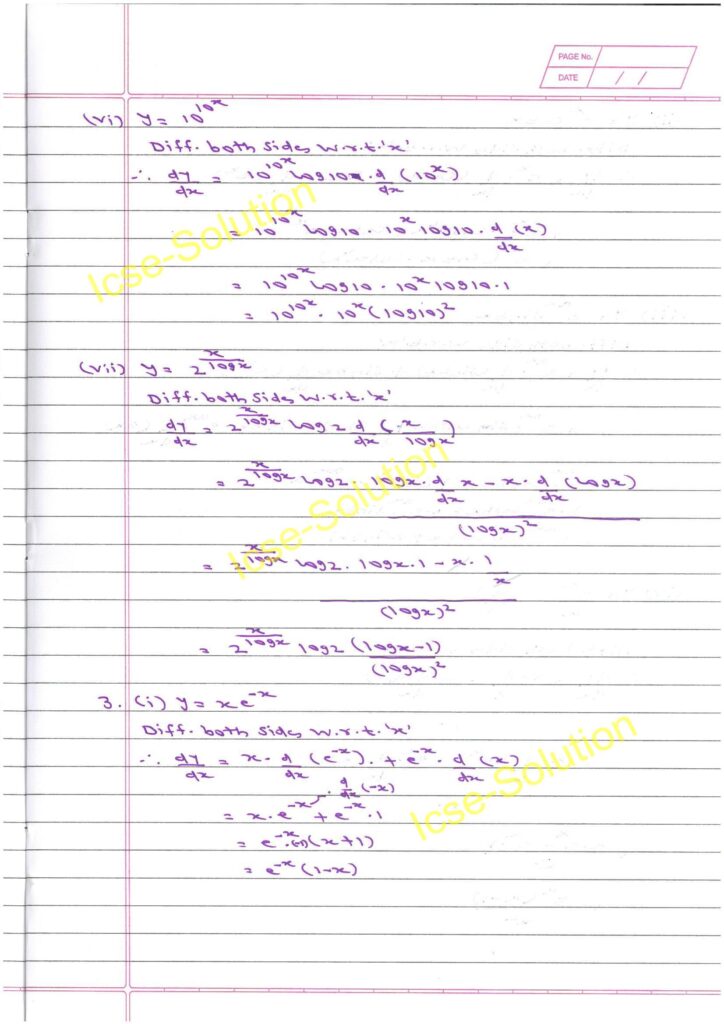 PAGE No.
DATE / /
(vi) y = 10^10^x
Diff. both sides w.r.t. 'x'
∴ dy/dx = 10^10^x log10x · d/dx (10^x)
= 10^10^x log10 · 10^x log10 · d/dx (x)
= 10^10^x log10 · 10^x log10 · 1
= 10^10^x · 10^x (log10)^2
(vii) y = 2^(x/logx)
Diff. both sides w.r.t. 'x'
dy/dx = 2^(x/logx) log2 d/dx (x/logx)
= 2^(x/logx) log2 · logx · d/dx x - x · d/dx (logx)
(logx)^2
= 2^(x/logx) log2 · logx · 1 - x · 1/x
(logx)^2
= 2^(x/logx) log2 (logx-1)
(logx)^2
3. (i) y = x e^-x
Diff. both sides w.r.t. 'x'
∴ dy/dx = x · d/dx (e^-x) · + e^-x · d/dx (x)
· d/dx (-x)
= x · e^-x + e^-x · 1
= e^-x ·(-1) (x+1)
= e^-x (1-x)
Icse-Solution
Icse-Solution
Icse-Solution